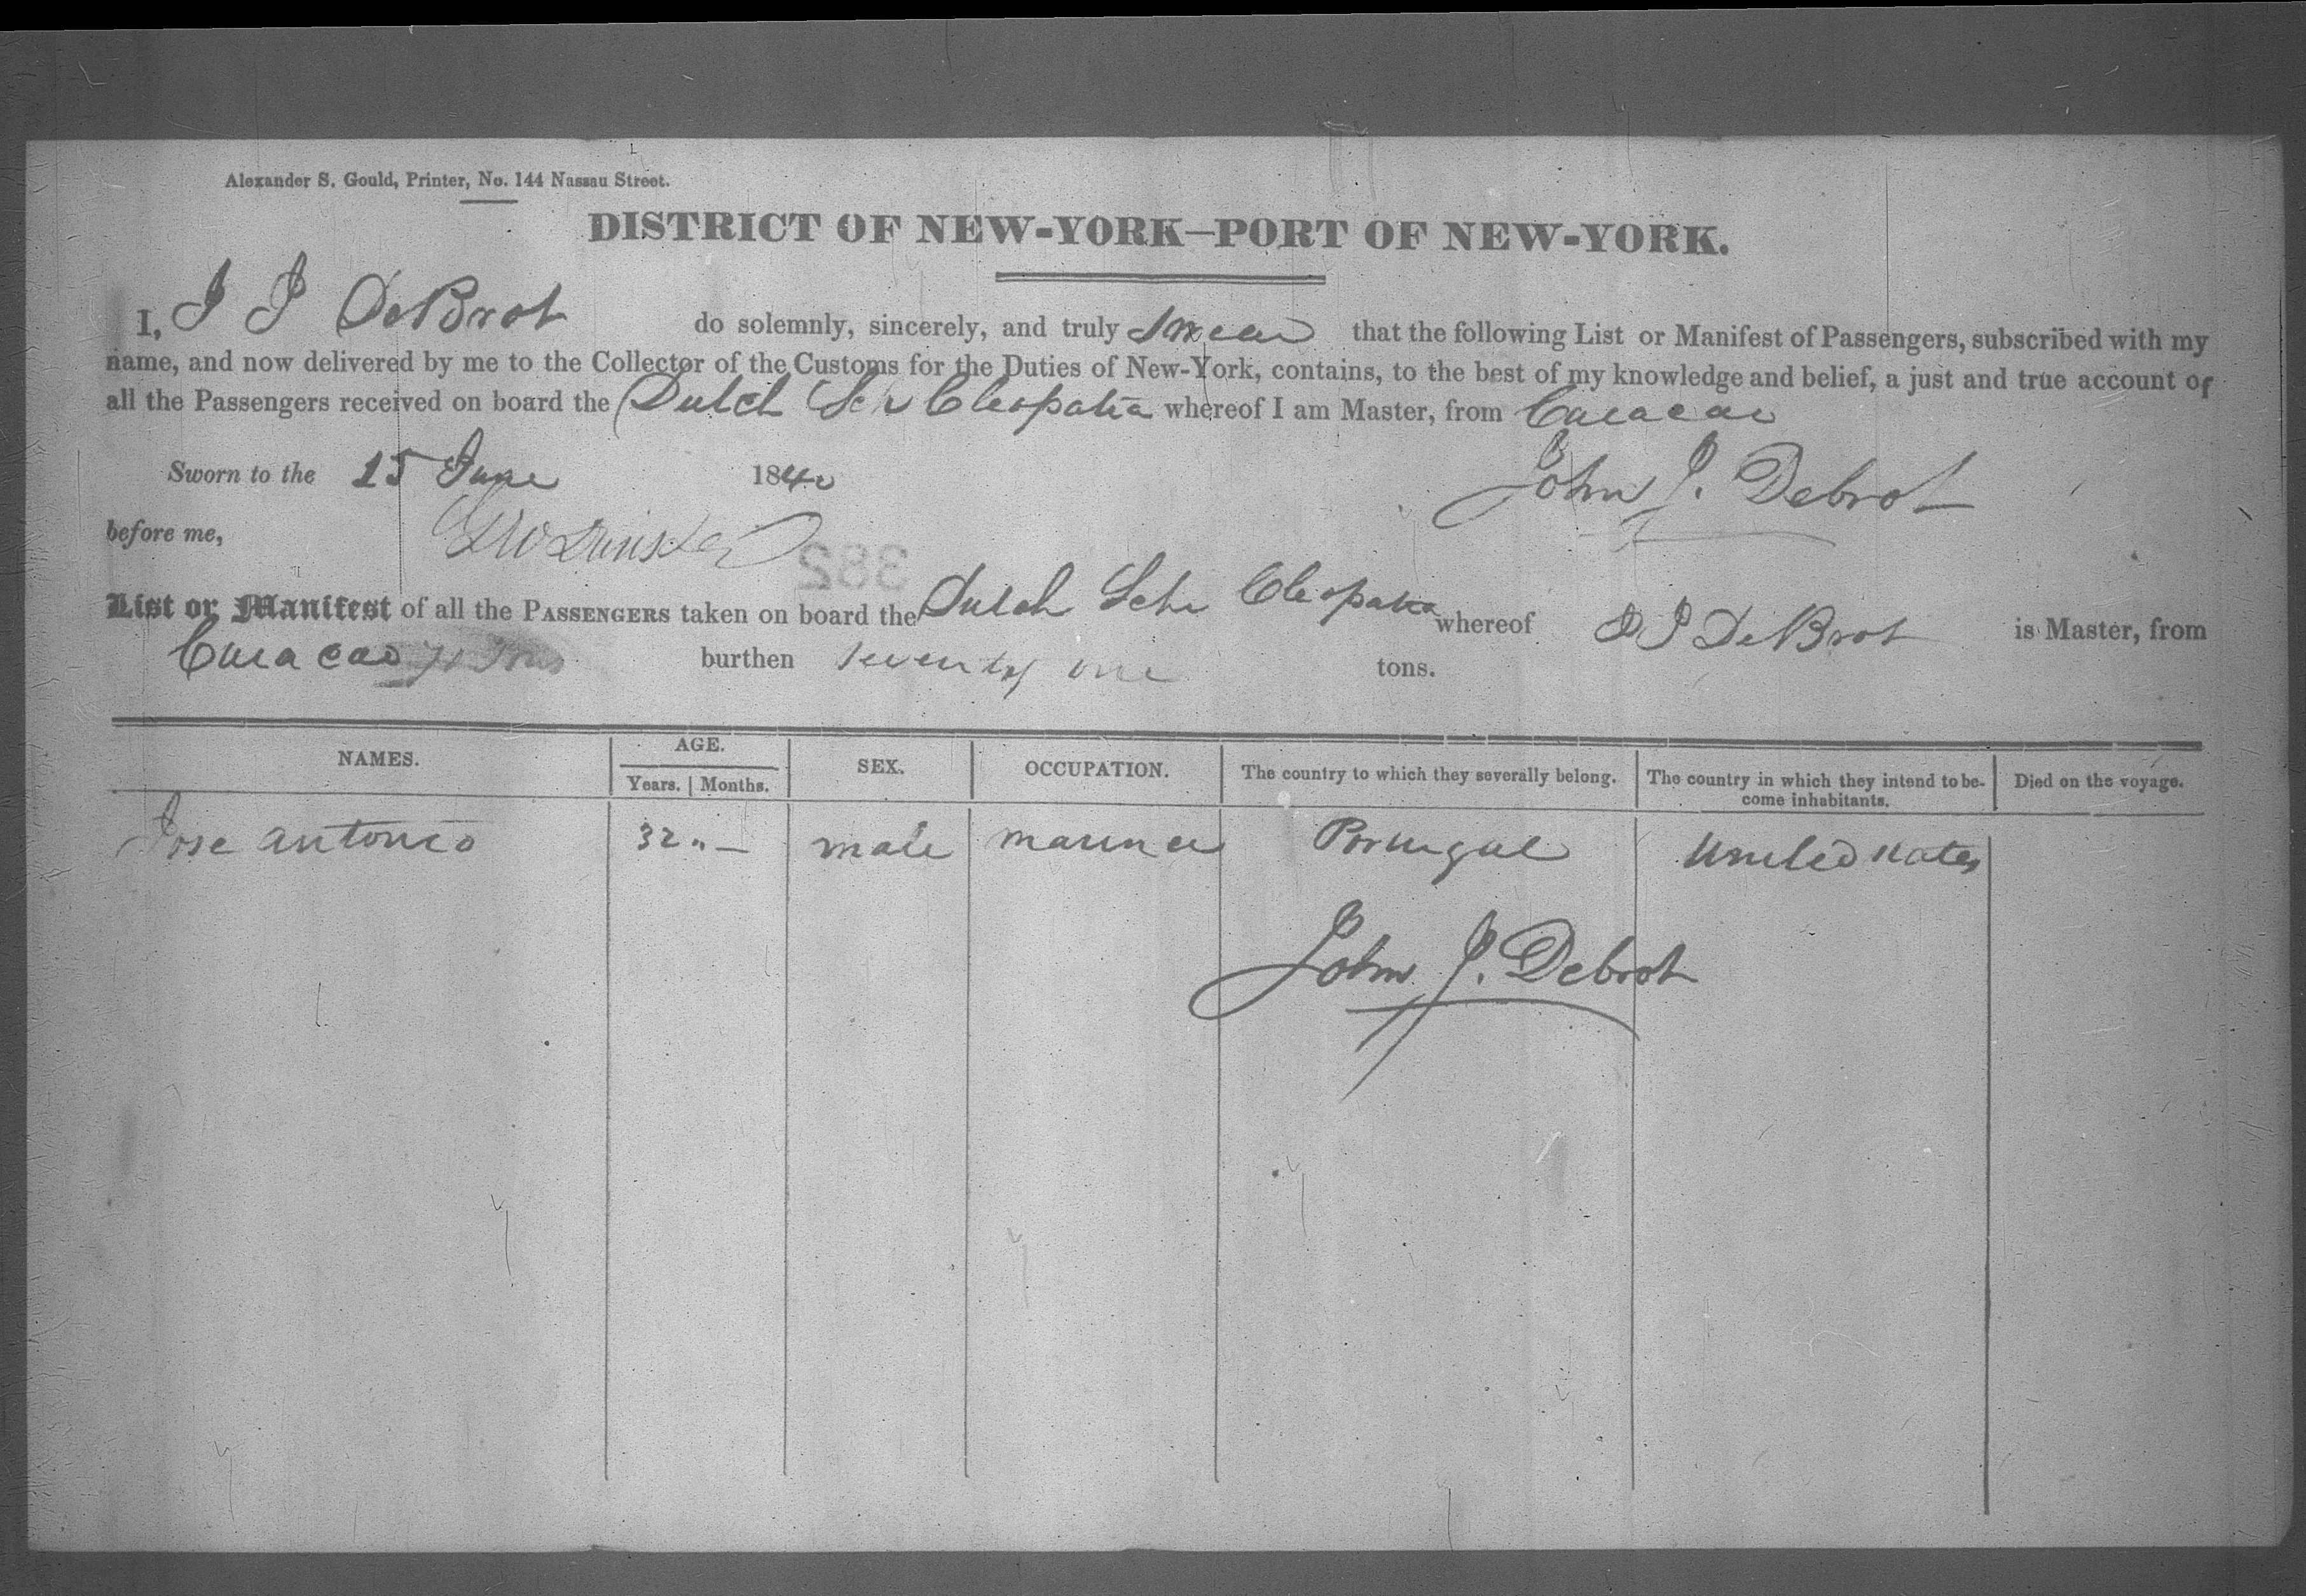 Alexander S. Gould, Printer, No. 144 Nassau Street.
DISTRICT OF NEW-YORK—PORT OF NEW-YORK.
I, J J DeBrot do solemnly, sincerely, and truly swear that the following List or Manifest of Passengers, subscribed with my
name, and now delivered by me to the Collector of the Customs for the Duties of New-York, contains, to the best of my knowledge and belief, a just and true account of
all the Passengers received on board the Dutch Schr Cleopatra whereof I am Master, from Curacao
Sworn to the 15 June 1840 John J. Debrot
before me,
382
List or Manifest of all the PASSENGERS taken on board the Dutch Schr Cleopatra whereof J J DeBrot is Master, from
Curacao burthen seventy one tons.
NAMES. AGE. Years. Months. SEX. OCCUPATION. The country to which they severally belong. The country in which they intend to become inhabitants. Died on the voyage.
Jose antonio 32 „ — male mariner Portugal United States
John J. Debrot